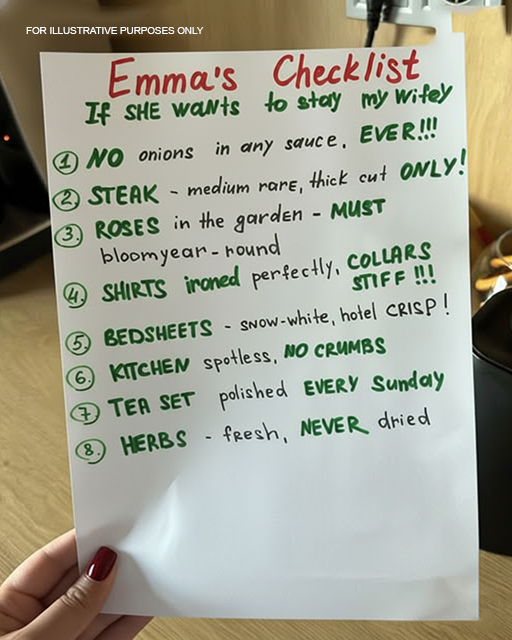 FOR ILLUSTRATIVE PURPOSES ONLY
Emma's Checklist
If SHE WANts to stay my Wifey
1 NO onions in any sauce, EVER!!!
2. STEAK - medium rare, thick cut ONLY!
3. ROSES in the garden - MUST
bloomyear-round
4. SHIRTS ironed perfectly, COLLARS
STIFF !!!
5. BEDSHEETS - snow-white, hotel CRISP!
6. KITCHEN spotless, NO CRUMBS
7 TEA SET polished EVERY Sunday
8. HERBS - fresh, NEVER dried